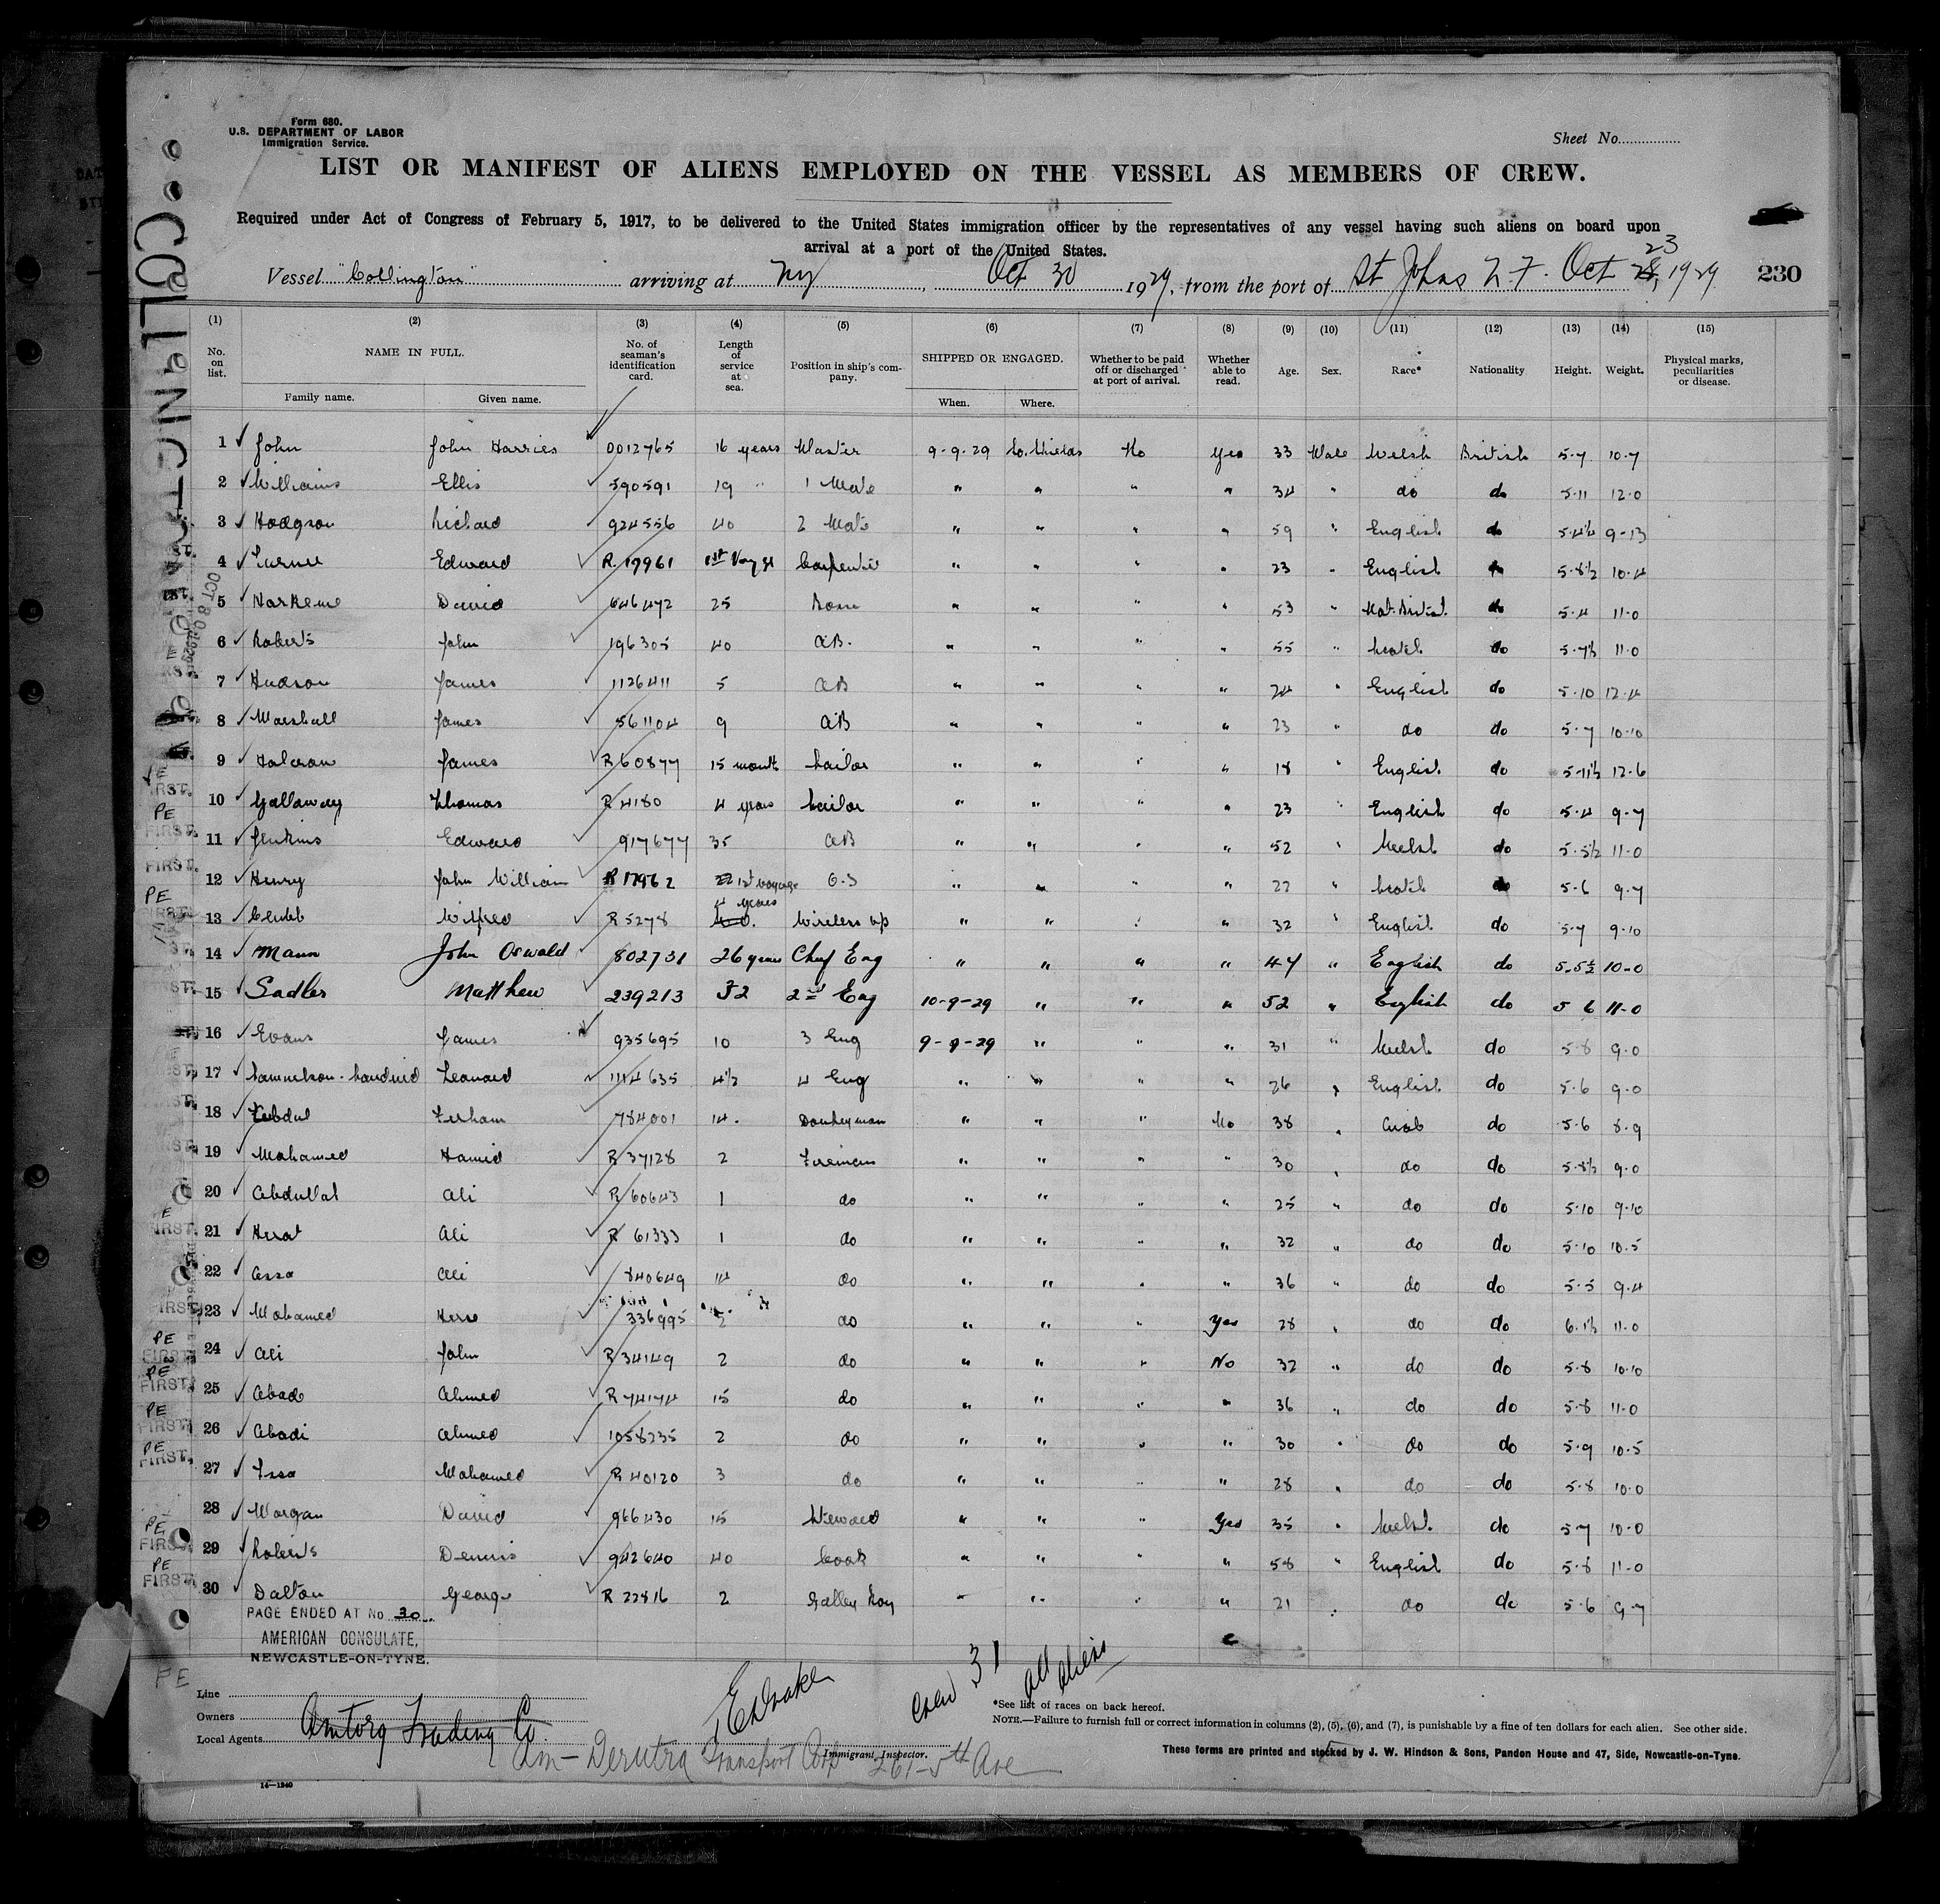 Form 680.
U.S. DEPARTMENT OF LABOR
Immigration Service.
Sheet No.
LIST OR MANIFEST OF ALIENS EMPLOYED ON THE VESSEL AS MEMBERS OF CREW.
Required under Act of Congress of February 5, 1917, to be delivered to the United States immigration officer by the representatives of any vessel having such aliens on board upon
arrival at a port of the United States.
Vessel "Collington" arriving at NY, Oct 30 1929, from the port of St Johns N.F. Oct 23, 1929 230
(1) (2) (3) (4) (5) (6) (7) (8) (9) (10) (11) (12) (13) (14) (15)
No. on list. NAME IN FULL. Family name. Given name. No. of seaman's identification card. Length of service at sea. Position in ship's company. SHIPPED OR ENGAGED. When. Where. Whether to be paid off or discharged at port of arrival. Whether able to read. Age. Sex. Race* Nationality Height. Weight. Physical marks, peculiarities or disease.
1 John John Harries 0012765 16 years Master 9-9-29 So. Shields No Yes 33 Male Welsh British 5-7 10-7
2 Williams Ellis 590591 19 " 1 Mate " " " " 34 " do do 5-11 12-0
3 Hodgson Richard 924556 40 2 Mate " " " " 59 " English do 5-4½ 9-13
4 Edward R.17961 1st Voyge Carpenter " " " " 23 " English do 5-8½ 10-4
5 David 646472 25 Bosn " " " " 53 " do 5-4 11-0
6 Roberts John 196305 40 AB. " " " " 55 " do 5-7½ 11-0
7 Hudson James 1126411 5 AB " " " " 24 " English do 5-10 12-4
8 Marshall James 561104 9 AB " " " " 23 " do do 5-7 10-10
9 Halcrow James R60877 15 month Sailor " " " " 18 " English do 5-11½ 12-6
10 Gallaway Thomas R 4180 4 years Sailor " " " " 23 " English do 5-4 9-7
11 Jenkins Edward 917677 35 AB " " " " 52 " Welsh do 5-5½ 11-0
12 Henry John William R 17962 1st voyage O.S " " " " 22 " do 5-6 9-7
13 Wilfred R 5278 4 years Wireless Op " " " " 32 " English do 5-7 9-10
14 Mann John Oswald 802731 26 years Chief Eng " " " " 47 " English do 5-5½ 10-0
15 Sadler Matthew 239213 32 2nd Eng 10-9-29 " " " 52 " English do 5 6 11-0
16 Evans James 935695 10 3 Eng 9-9-29 " " " 31 " Welsh do 5-8 9-0
17 Leonard 1114635 4½ 4 Eng " " " " 26 " English do 5-6 9-0
18 Ferham 784001 14. Donkeyman " " " No 38 " Arab do 5-6 8-9
19 Mohamed Hamid R 37128 2 Fireman " " " " 30 " do do 5-8½ 9-0
20 Abdullah Ali R 60643 1 do " " " " 25 " do do 5-10 9-10
21 Ali R 61333 1 do " " " " 32 " do do 5-10 10-5
22 Assa Ali 840649 14 do " " " " 36 " do do 5-5 9-4
23 Mohamed 336995 2 do " " " Yes 28 " do do 6-1½ 11-0
24 Ali John R 34149 2 do " " " No 32 " do do 5-8 10-10
25 Abad Ahmed R 74174 15 do " " " " 36 " do do 5-8 11-0
26 Abadi Ahmed 1058235 2 do " " " " 30 " do do 5-9 10-5
27 Mohamed R 40120 3 do " " " " 28 " do do 5-8 10-0
28 Morgan David 966430 15 Steward " " " Yes 35 " Welsh do 5-7 10-0
29 Roberts Dennis 942640 40 Cook " " " " 58 " English do 5-8 11-0
30 Dalton George R 22816 2 Galley Boy " " " " 21 " do do 5-6 9-7
PAGE ENDED AT No 30
AMERICAN CONSULATE,
NEWCASTLE-ON-TYNE.
COLLINGTON
Crew 31 all aliens
Line
Owners
Local Agents Amtorg Trading Co.
Am-Derutra Transport Corp 261-5th Ave
E Drake
Immigrant Inspector.
*See list of races on back hereof.
NOTE.—Failure to furnish full or correct information in columns (2), (5), (6), and (7), is punishable by a fine of ten dollars for each alien. See other side.
These forms are printed and stocked by J. W. Hindson & Sons, Pandon House and 47, Side, Newcastle-on-Tyne.
14—1240